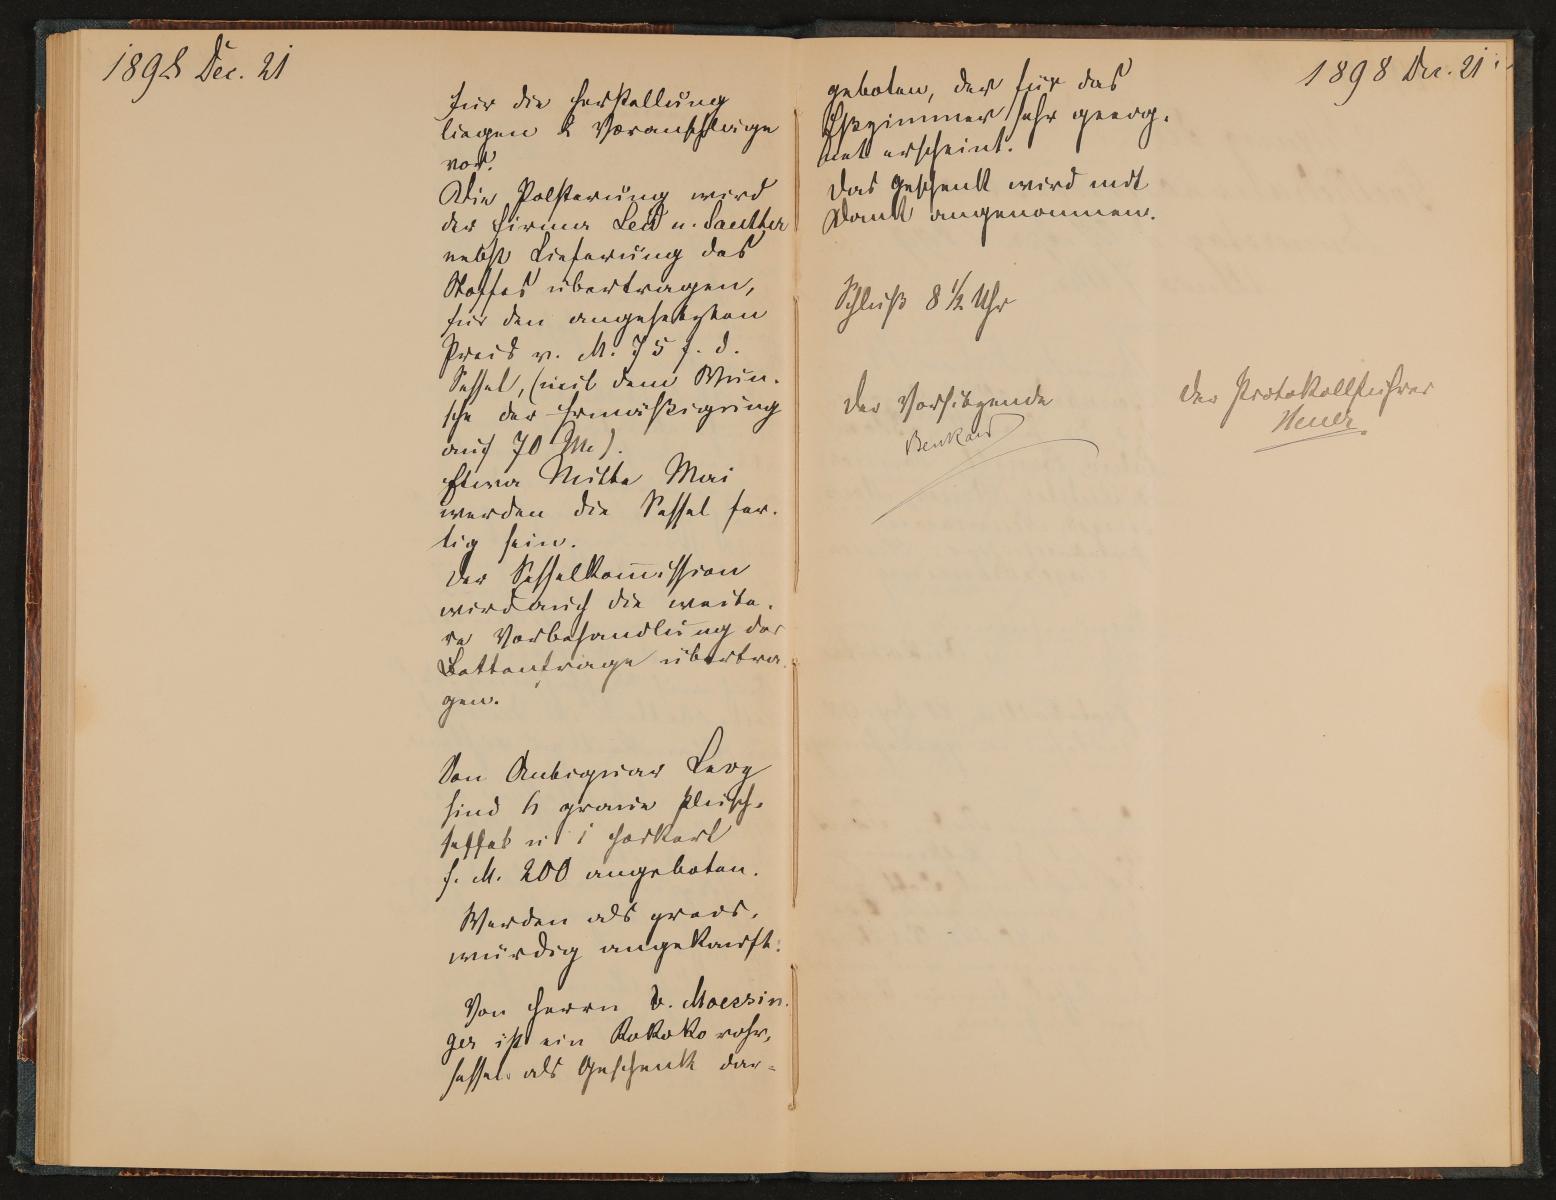 1898 Dec. 21
für die Herstellung
liegen 2 Voranschläge
vor.
Die Polsterung wird
der Firma u. Sauther
nebst Lieferung des
Stoffes übertragen,
für den angesetzten
Preis v. M. 75 f. d.
Sessel, (mit dem Wun-
sche der Ermäßigung
auf 70 M).
Etwa Mitte Mai
werden die Sessel fer-
tig sein.
Der Sesselkom̅ission
wird auch die weite-
re Vorbehandlung der
Bettenfrage übertra-
gen.
Von Antiquar Levy
sind 6 graue Plüsch-
sessel u 1
f. M. 200 angeboten.
Werden als preis-
würdig angekauft.
Von Herrn v. Moessin-
ger ist ein Rokoko rohr-
sessel als Geschenk dar-
1898 Dec. 21
geboten, der für das
Eßzimmer sehr geeig-
net erscheint.
Das Geschenk wird mit
Dank angenommen.
Schluß 8 1/2 Uhr
Der Vorsitzende
Benkard
Der Protokollführer